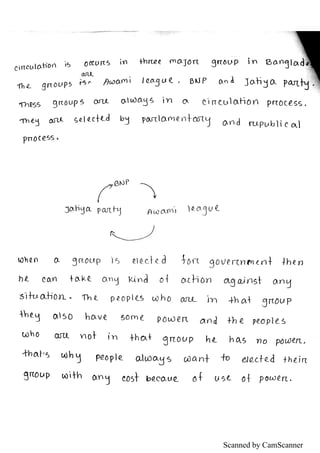 circulation is occurs in three major group in Banglade
are
The groups is Awami league, BNP and Jatiya party.
Thess groups are always in a circulation process.
They are selected by parlamentary and republical
process.
BNP
Jatiya party Awami league
when a group is elected for government then
he can take any kind of action against any
situation. The peoples who are in that group
they also have some power and the peoples
who are not in that group he has no power.
that's why people always want to elected their
group with any cost becaue of use of power.
Scanned by CamScanner